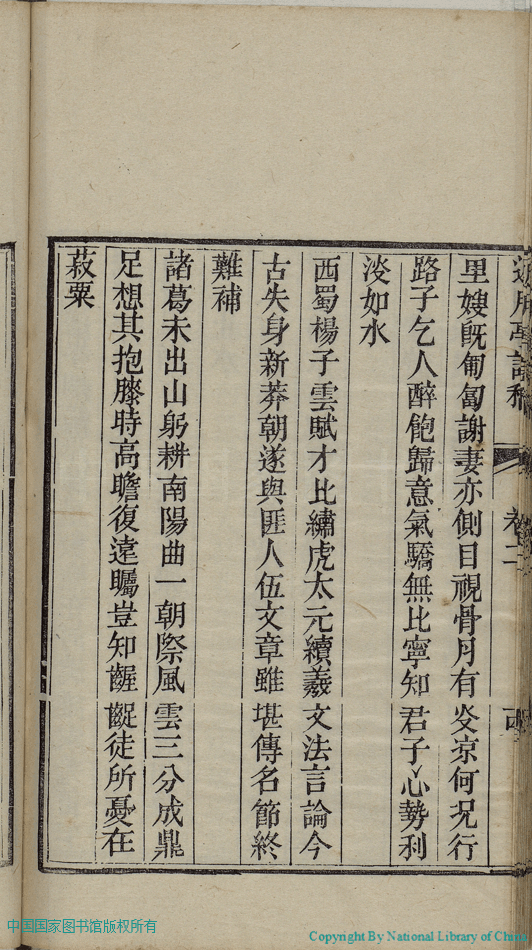 卷二
里嫂旣匍匐謝妻亦側目視骨月有炎凉何况行
路子乞人醉飽歸意氣驕無比寧知君子心勢利
淡如水
西蜀楊子雲賦才比繡虎太元續羲文法言論今
古失身新莽朝遂與匪人伍文章雖堪傳名節終
難補
諸葛未出山躬耕南陽曲一朝際風雲三分成鼎
足想其抱膝時高瞻復遠矚豈知齷齪徒所憂在
菽粟
中国国家图书馆版权所有
Copyright By National Library of China